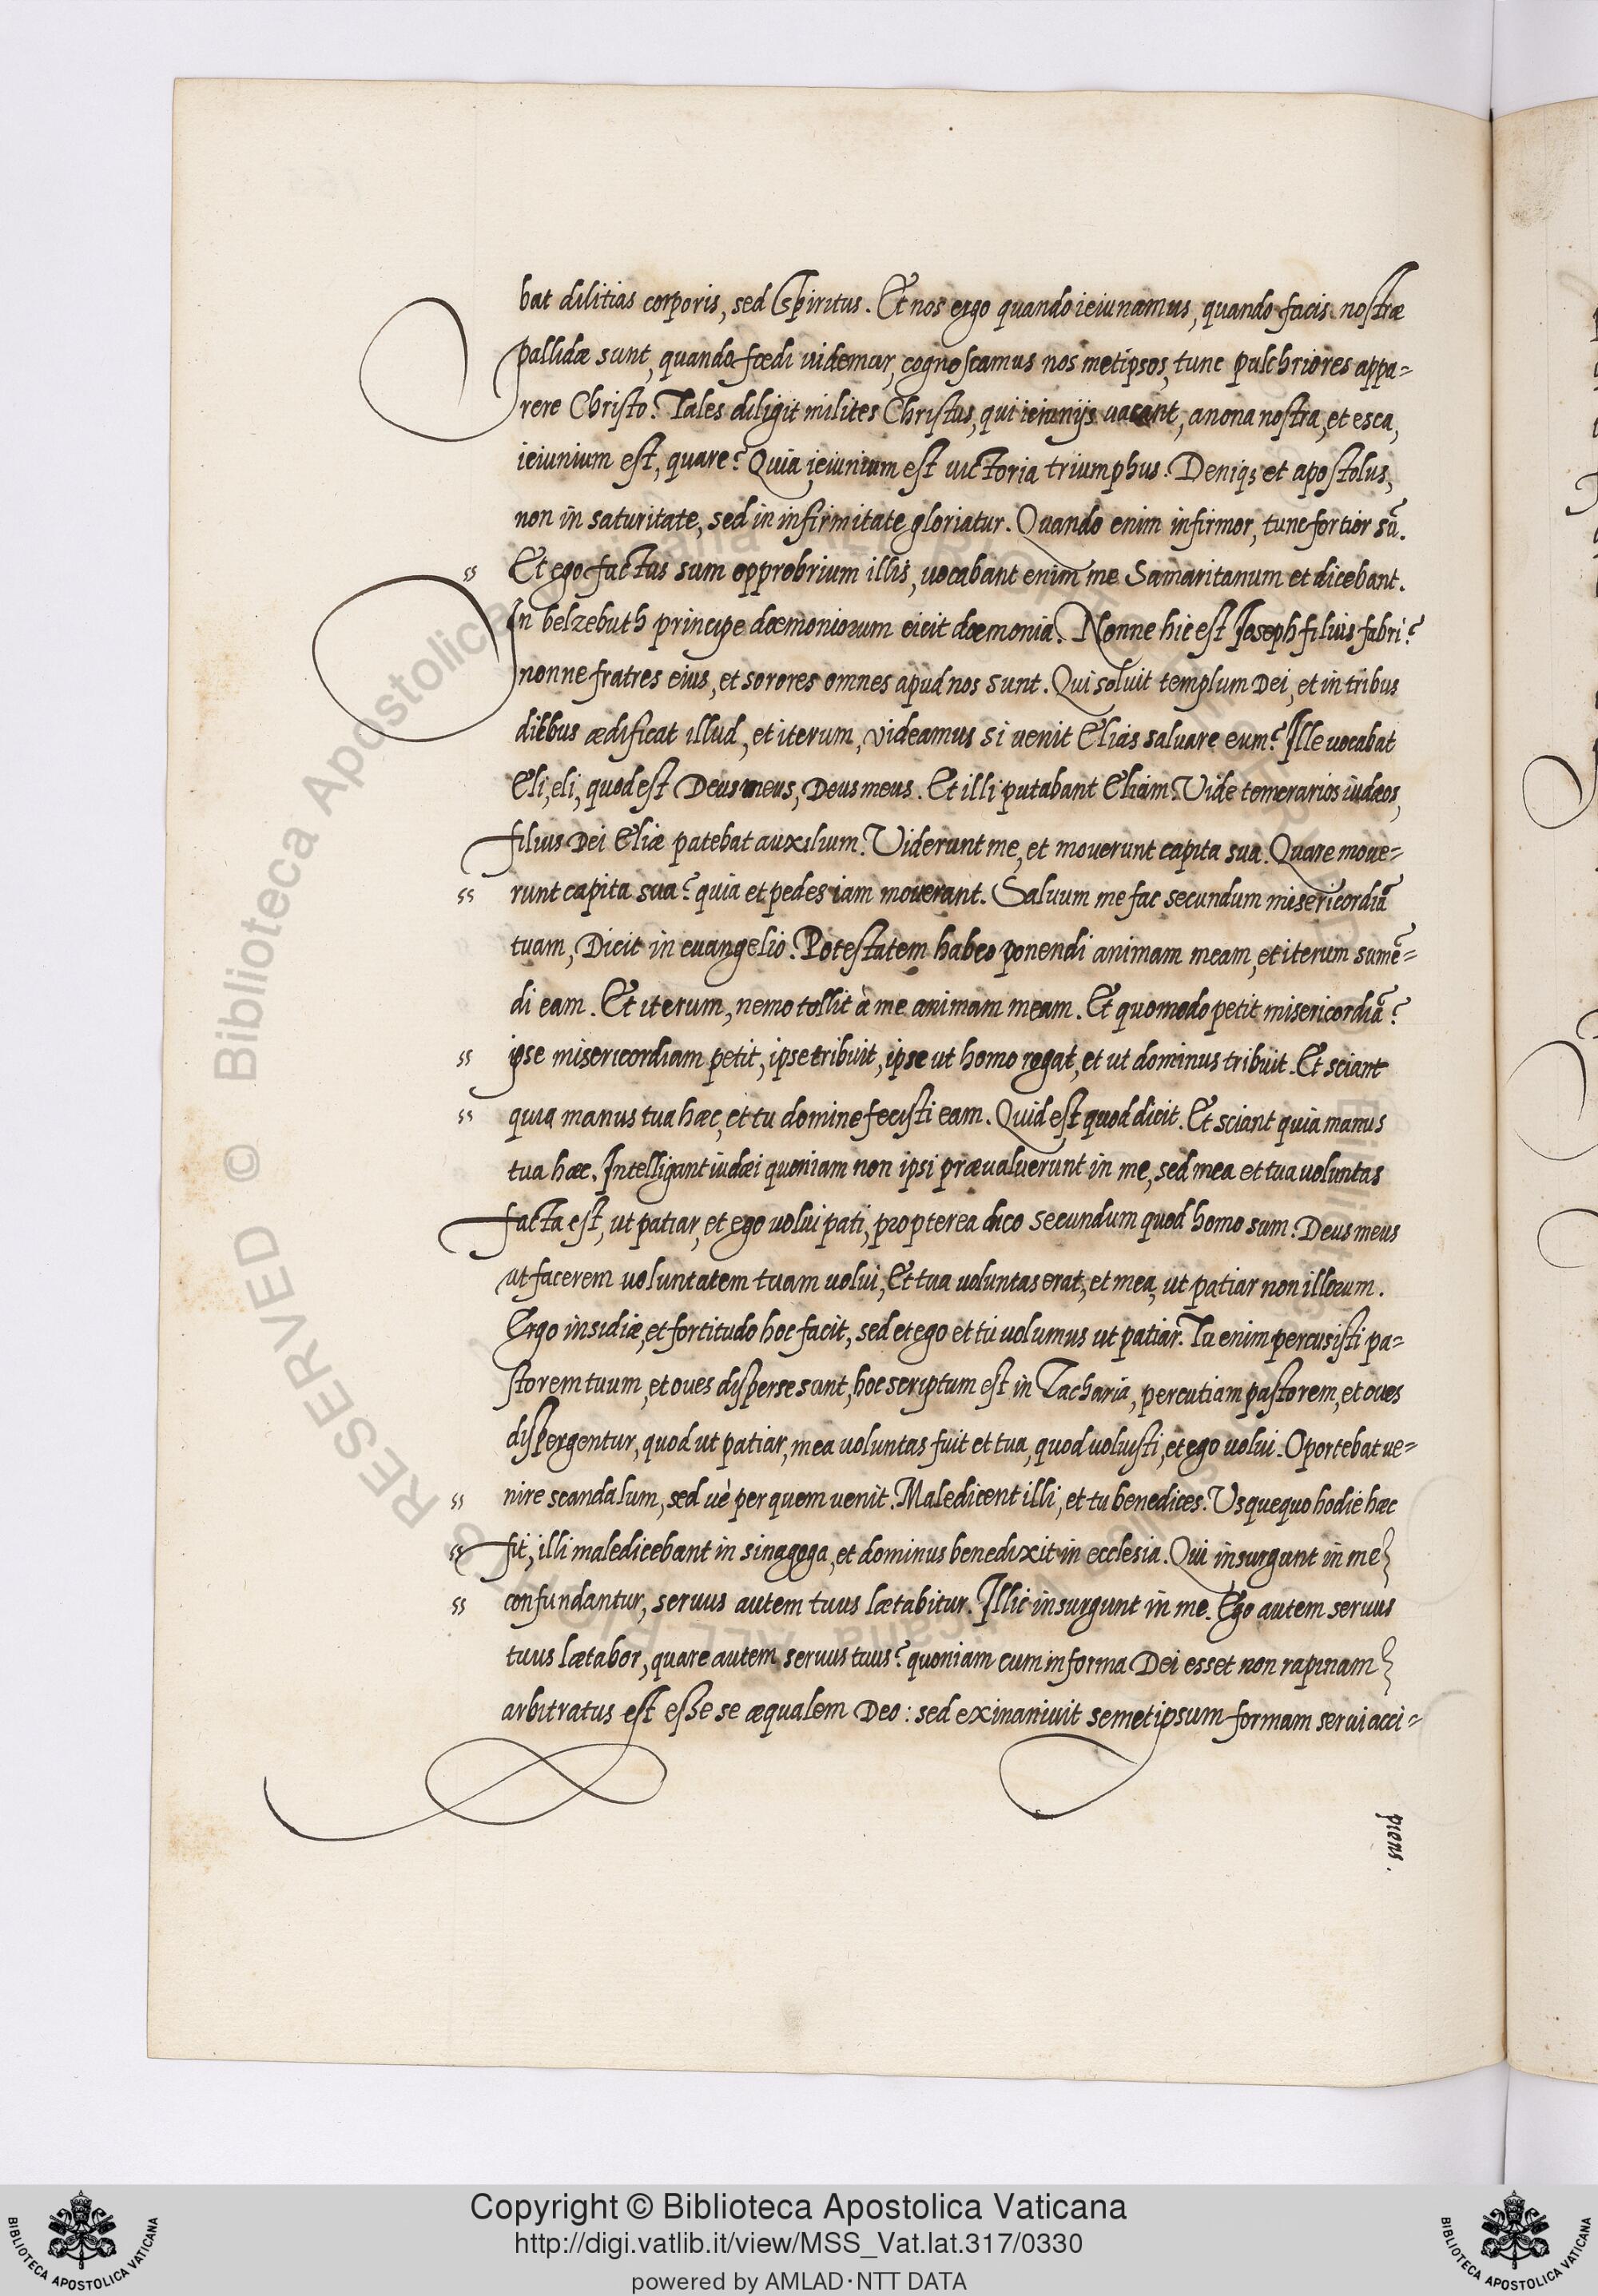 bat dilitias corporis, sed Spiritus. Et nos ergo quando ieiunamus, quando facis nostræ
pallidæ sunt, quando fœdi videmur, cognoscamus nos metipsos, tunc pulchriores appa=
rere Christo. Tales diligit milites Christus, qui ieiunijs vacant, anona nostra, et esca,
ieiunium est, quare? Quia ieiunium est victoria triumphus. Deniq; et apostolus,
non in saturitate, sed in infirmitate gloriatur. Quando enim infirmor, tunc fortior sũ.
ss Et ego factus sum opprobrium illis, vocabant enim me Samaritanum et dicebant.
In belzebuth principe dæmoniorum eicit dæmonia. Nonne hic est Ioseph filius fabri?
nonne fratres eius, et sorores omnes apud nos sunt. Qui soluit templum Dei, et in tribus
diebus ædificat illud, et iterum, videamus si uenit Elias saluare eum? Ille uocabat
Eli, eli, quod est Deus meus, Deus meus. Et illi putabant Eliam. Vide temerarios iudæos,
filius Dei Eliæ patebat auxilium. Viderunt me, et mouerunt capita sua. Quare moue=
ss runt capita sua? quia et pedes iam mouerant. Saluum me fac secundum misericordiã
tuam, Dicit in euangelio. Potestatem habeo ponendi animam meam, et iterum sumẽ=
di eam. Et iterum, nemo tollit à me animam meam. Et quomodo petit misericordiã?
ss ipse misericordiam petit, ipse tribuit, ipse ut homo rogat, et ut dominus tribuit. Et sciant
ss quia manus tua hæc, et tu domine fecisti eam. Quid est quod dicit. Et sciant quia manus
tua hæc. Intelligant iudæi quoniam non ipsi præualuerunt in me, sed mea et tua uoluntas
facta est, ut patiar, et ego uolui pati, propterea dico secundum quod homo sum. Deus meus
ut facerem uoluntatem tuam uolui, Et tua uoluntas erat, et mea, ut patiar non illorum.
Ergo insidiæ, et fortitudo hoc facit, sed et ego et tu uolumus ut patiar. Tu enim percusisti pa=
storem tuum, et oues disperse sunt, hoc scriptum est in Zacharia, percutiam pastorem, et oues
dispergentur, quod ut patiar, mea uoluntas fuit et tua, quod uoluisti, et ego uolui. Oportebat ue=
ss nire scandalum, sed uè per quem uenit. Maledicent illi, et tu benedices. Usquequo hodie hæc
ss fit, illi maledicebant in sinagoga, et dominus benedixit in ecclesia. Qui insurgunt in me
ss confundantur, seruus autem tuus lætabitur. Illic insurgunt in me. Ego autem seruus
tuus lætabor, quare autem seruus tuus? quoniam cum in forma Dei esset non rapinam
arbitratus est esse se æqualem Deo: sed exinaniuit semetipsum formam serui acci=
piens.
Biblioteca Apostolica Vaticana
© Biblioteca Apostolica Vaticana ALL RIGHTS RESERVED
Copyright © Biblioteca Apostolica Vaticana
http://digi.vatlib.it/view/MSS_Vat.lat.317/0330
powered by AMLAD·NTT DATA
BIBLIOTECA APOSTOLICA VATICANA
BIBLIOTECA APOSTOLICA VATICANA